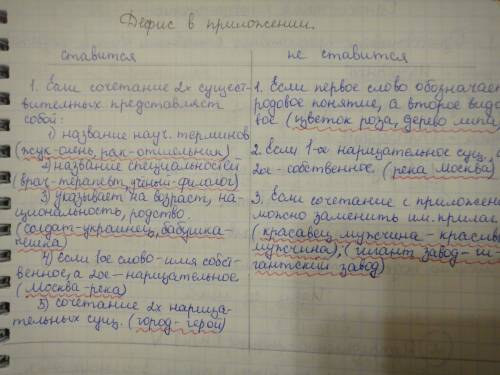 Дефис в приложении.
ставится
1. Если сочетание 2х сущест-
вительных представляет
собой:
1) название науч. терминов
(жук-олень, рак-отшельник)
2) название специальностей
(врач-терапевт, учёный-филолог)
3) указывает на возраст, на-
циональность, родство.
(солдат-украинец, бабушка-
4) если 1ое слово-имя собст-
венное, а 2ое-нарицательное
(Москва-река)
5) сочетание 2х нарица-
тельных сущ. (город-герой)
не ставится
1. Если первое слово обозначает
родовое понятие, а второе видо-
вое (цветок роза, дерево липа
2. Если 1-ое нарицательное сущ.
2ое-собственное. (река Москва)
3. Если сочетание с приложени
можно заменить им. прилаг.
(красавец мужчина-красивы
мужчина), (гигант завод-ги-
гантский завод)